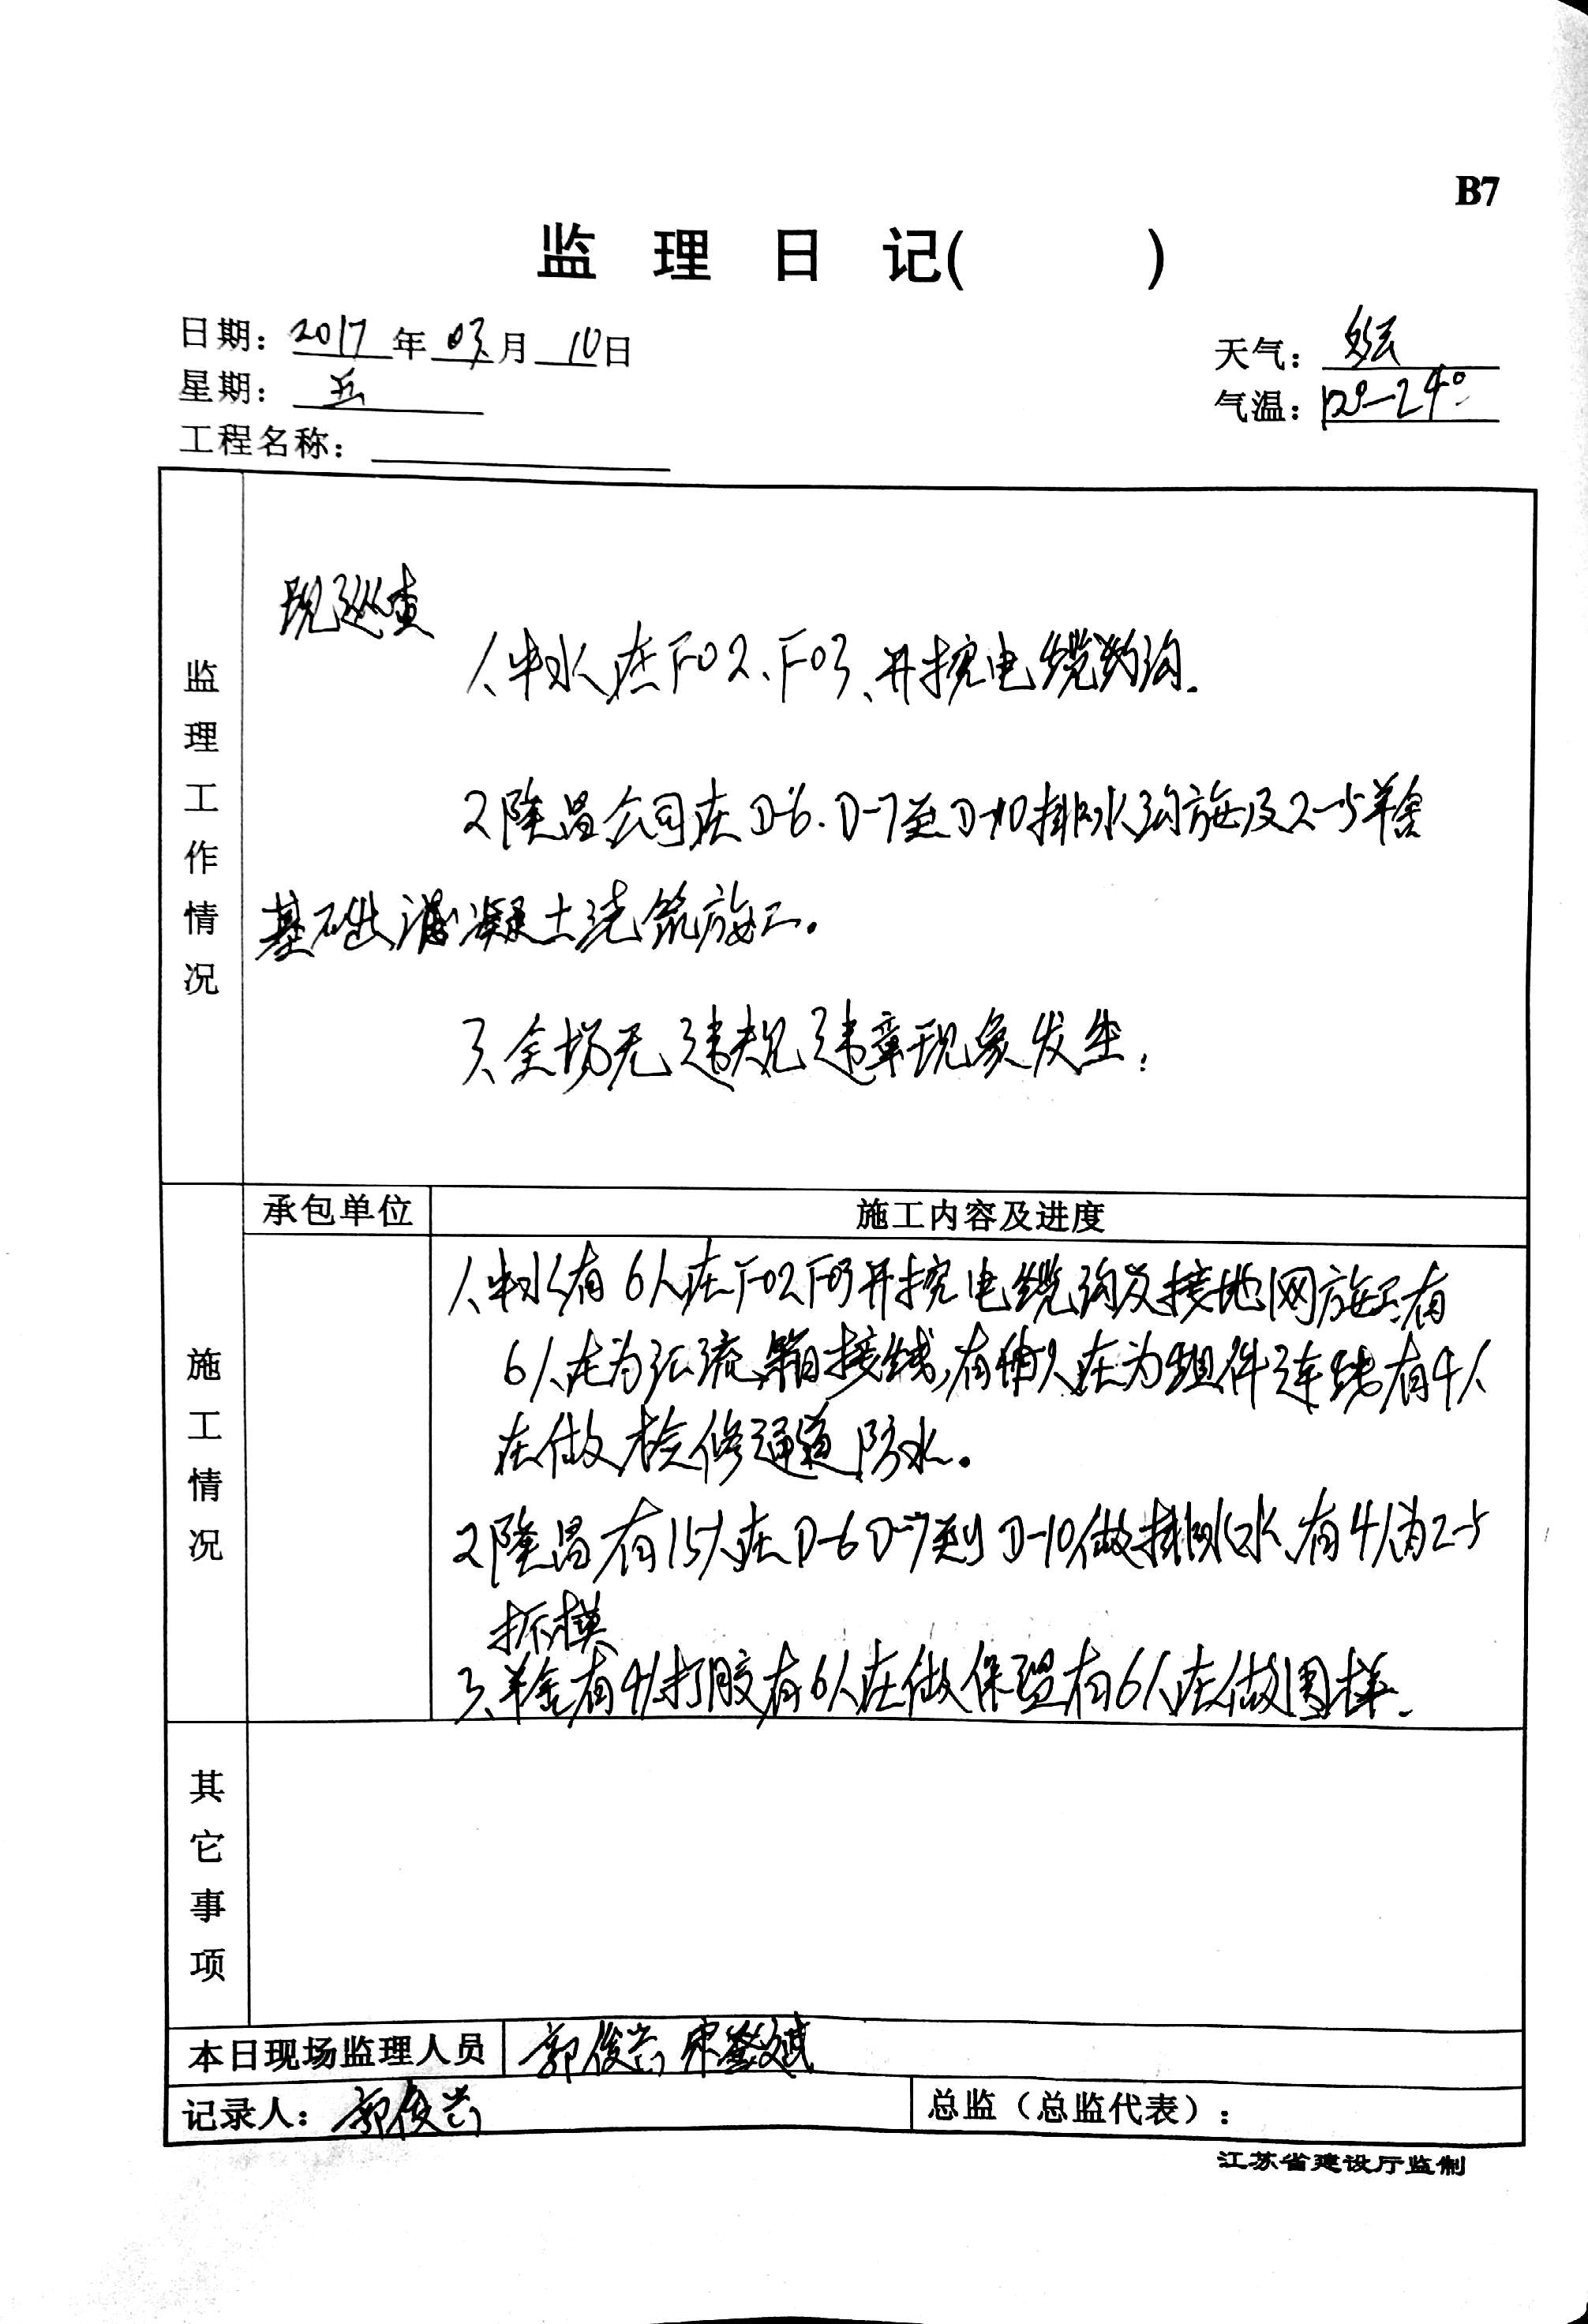 B7
监 理 日 记( )
日期: 2017 年 03 月 10 日
天气: 多云
星期: 五
气温: 12°-24°
工程名称:
监理工作情况
现巡查
1、中水在F02、F03、开挖电缆沟.
2隆昌公司在D-6.D-7至D-10排水沟施及2-5羊舍
基础混凝土浇筑施工。
3、全场无违规违章现象发生.
承包单位 施工内容及进度
施工情况
1、中水有6人在F02F03开挖电缆沟及接地网施工有
6人在为汇流箱接线,有 人在为组件连线有4人
在做检修通道防水。
2隆昌有15人在D-6D-7到D-10做排水,有4人为2-5
拆模
3、羊舍有4人打胶有6人在做保温有6人在做围栏.
其它事项
本日现场监理人员 郭俊 宋 斌
记录人: 郭俊
总监（总监代表）:
江苏省建设厅监制